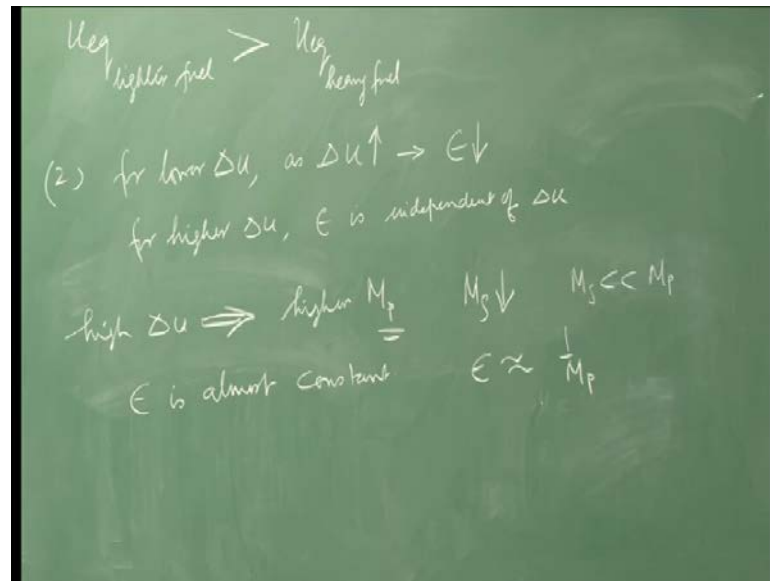 Ueq lighter fuel > Ueq heavy fuel
(2) for lower ΔU, as ΔU↑ → ∈↓
for higher ΔU, ∈ is independent of ΔU
high ΔU ⇒ higher Mp Ms↓ Ms << Mp
∈ is almost constant ∈ ≈ 1/Mp